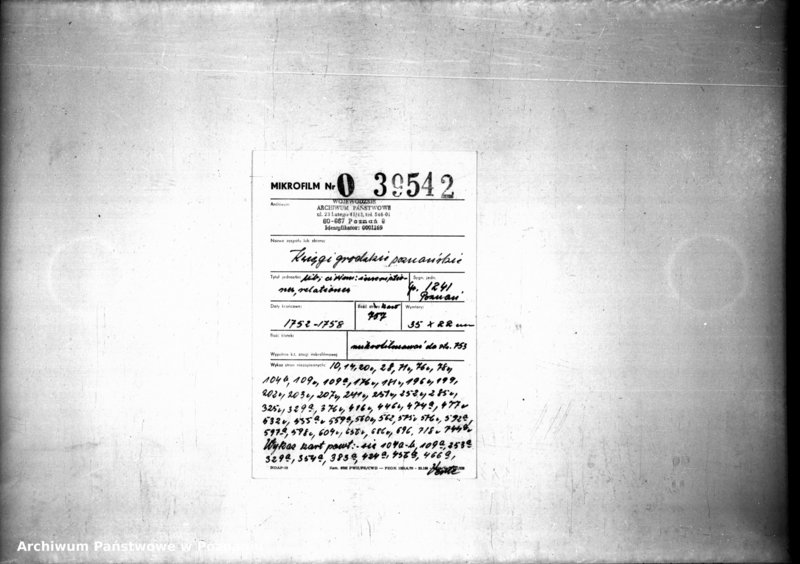 MIKROFILM Nr 0 39542
Archiwum
WOJEWÓDZKIE
ARCHIWUM PAŃSTWOWE
60-967 Poznań 9
Identyfikator: 0001269
Nazwa zespołu lub zbioru:
Księgi grodzkie poznańskie
Tytuł jednostki:
relationes
Sygn. jedn.
Gr. 1241
Poznań
Daty krańcowe:
1752-1758
Ilość stron kart
757
Wymiary:
35 x 22 cm
Ilość klatek:
Wypełnia kz. stacji mikrofilmowej
mikrofilmować do str. 753
Wykaz stron niezapisanych: 10, 14, 20v, 28, 71v, 76v, 78v,
104b, 109v, 109a, 176v, 181v, 196v, 199,
202v, 203v, 207v, 241v, 251v, 252v, 285v,
325v, 329a, 376v, 416v, 446v, 474a, 477v
532v, 535a v 559a, 560v, 562, 575v 576v, 592a,
597a, 598v, 604v, 656v, 686v, 696, 718v 744a v
Wykaz kart powt:-się 104a-b, 109a, 253a
329a, 354a, 383a, 424a, 456a, 466a,
Archiwum Państwowe w Poznaniu